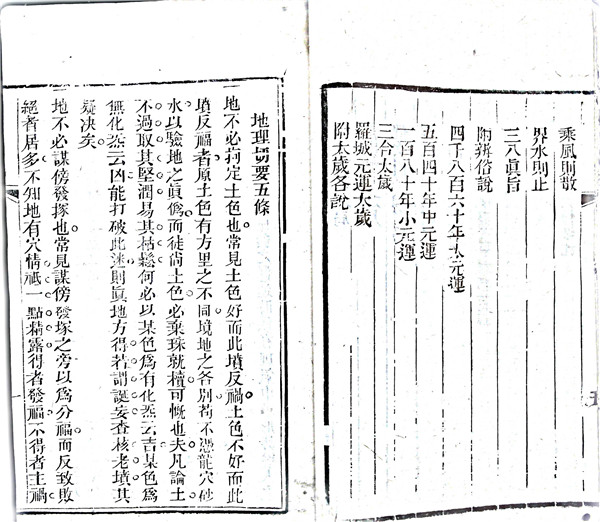 乘風則散
界水則止
三八眞旨
附辨俗說
四千八百六十年大元運
五百四十年中元運
一百八十年小元運
三合太歲
羅城元運太歲
附太歲各說
地理切要五條
一地不必拘定土色也常見土色好而此墳反禍土色不好而此
墳反福者原土色有方里之不同境地之各別苟不憑龍穴砂
水以驗地之眞僞而徒尙土色必棄珠就櫝可慨也夫凡論土
不過取其堅潤易其枯鬆何必以某色爲有化炁云吉某色爲
無化炁云凶能打破此迷則眞地方得若謂誕妄查核老墳其
疑決矣
一地不必謀傍發塚也常見謀傍發塚之旁以爲分福而反致敗
絕者居多不知地有穴情祗一點精露得者發福不得者主禍